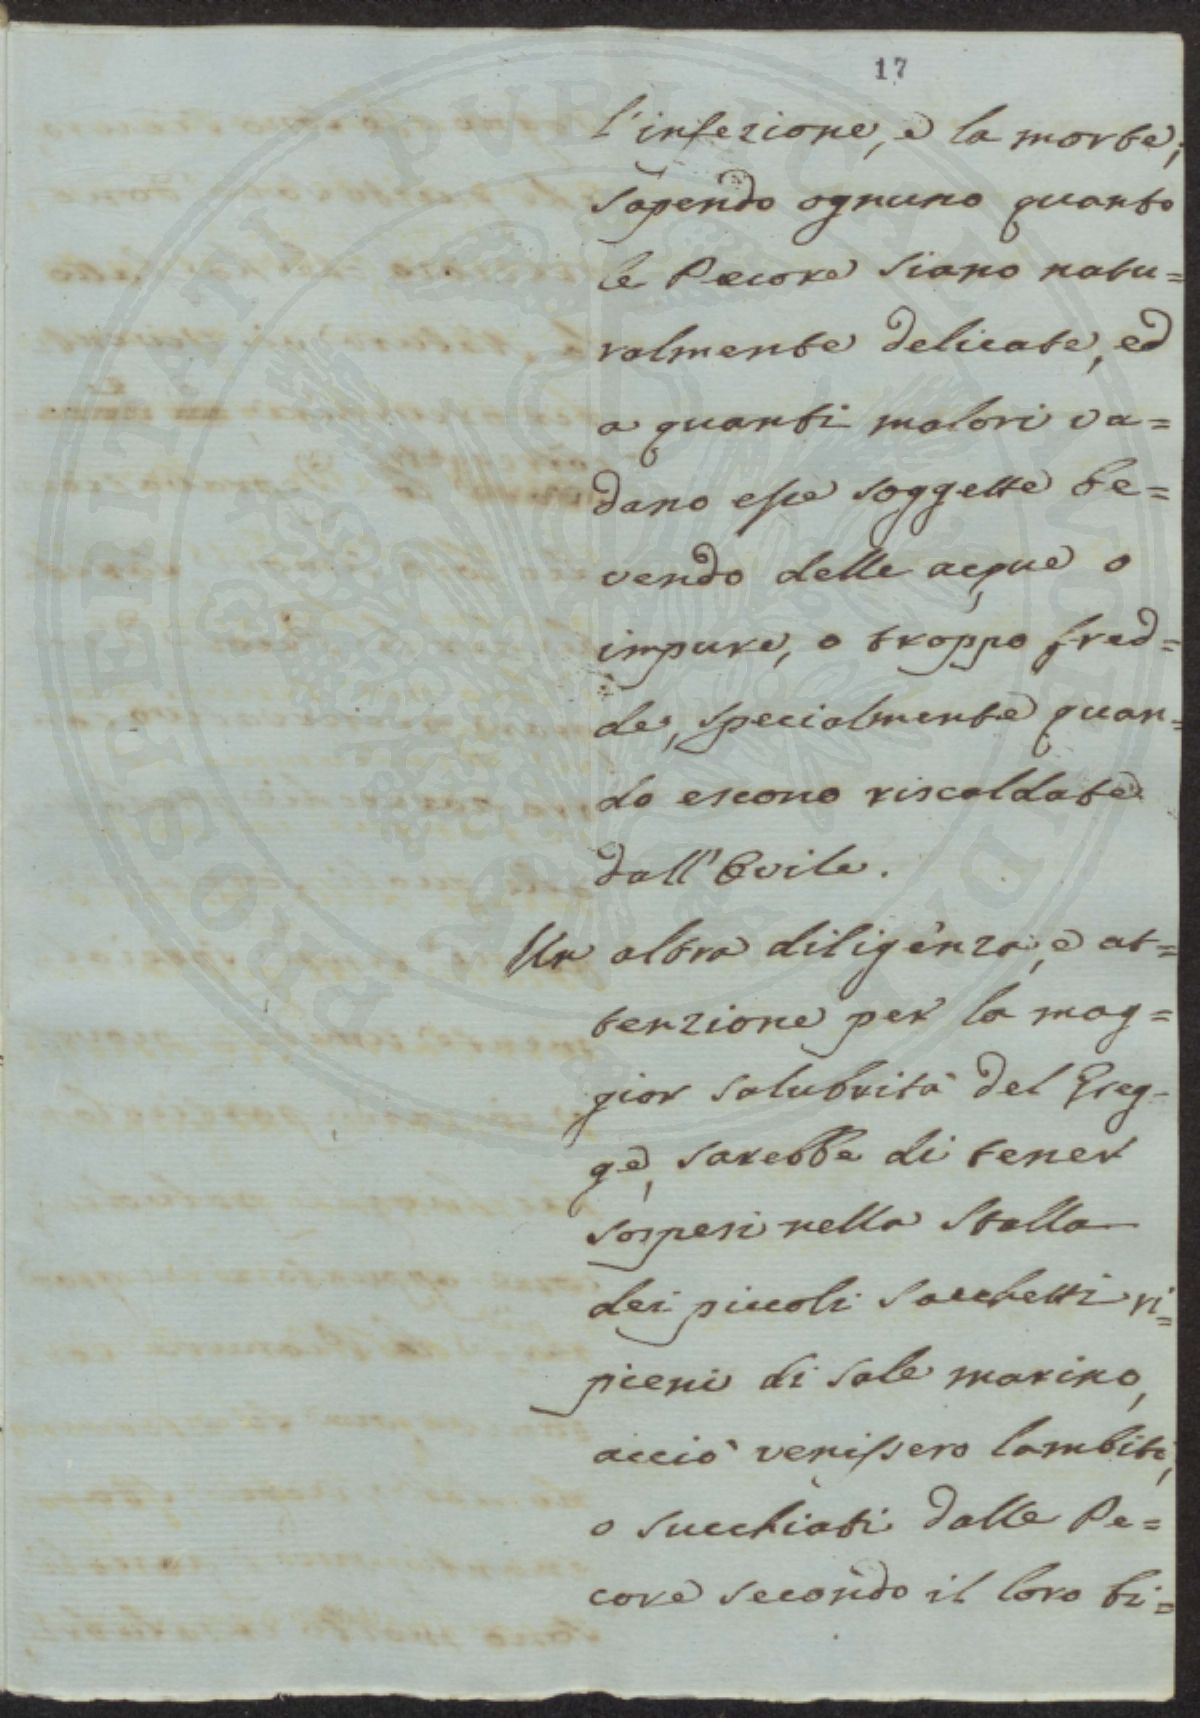 17
l'infezione, e la morte;
sapendo ognuno quanto
le Pecore siano natu=
ralmente delicate, ed
a quanti malori va=
dano esse soggette be=
vendo delle acque o
impure, o troppo fred=
de, specialmente quan=
do escono riscaldate
dall'Ovile.
Un altra diligenza, e at=
tenzione per la mag=
gior salubrità del Greg-
ge, sarebbe di tener
sospesi nella Stalla
dei piccoli sacchetti ri=
pieni di sale marino,
acciò venissero lambiti,
o succhiati dalle Pe=
core secondo il loro bi=
PROSPERITATI PUBLICAE